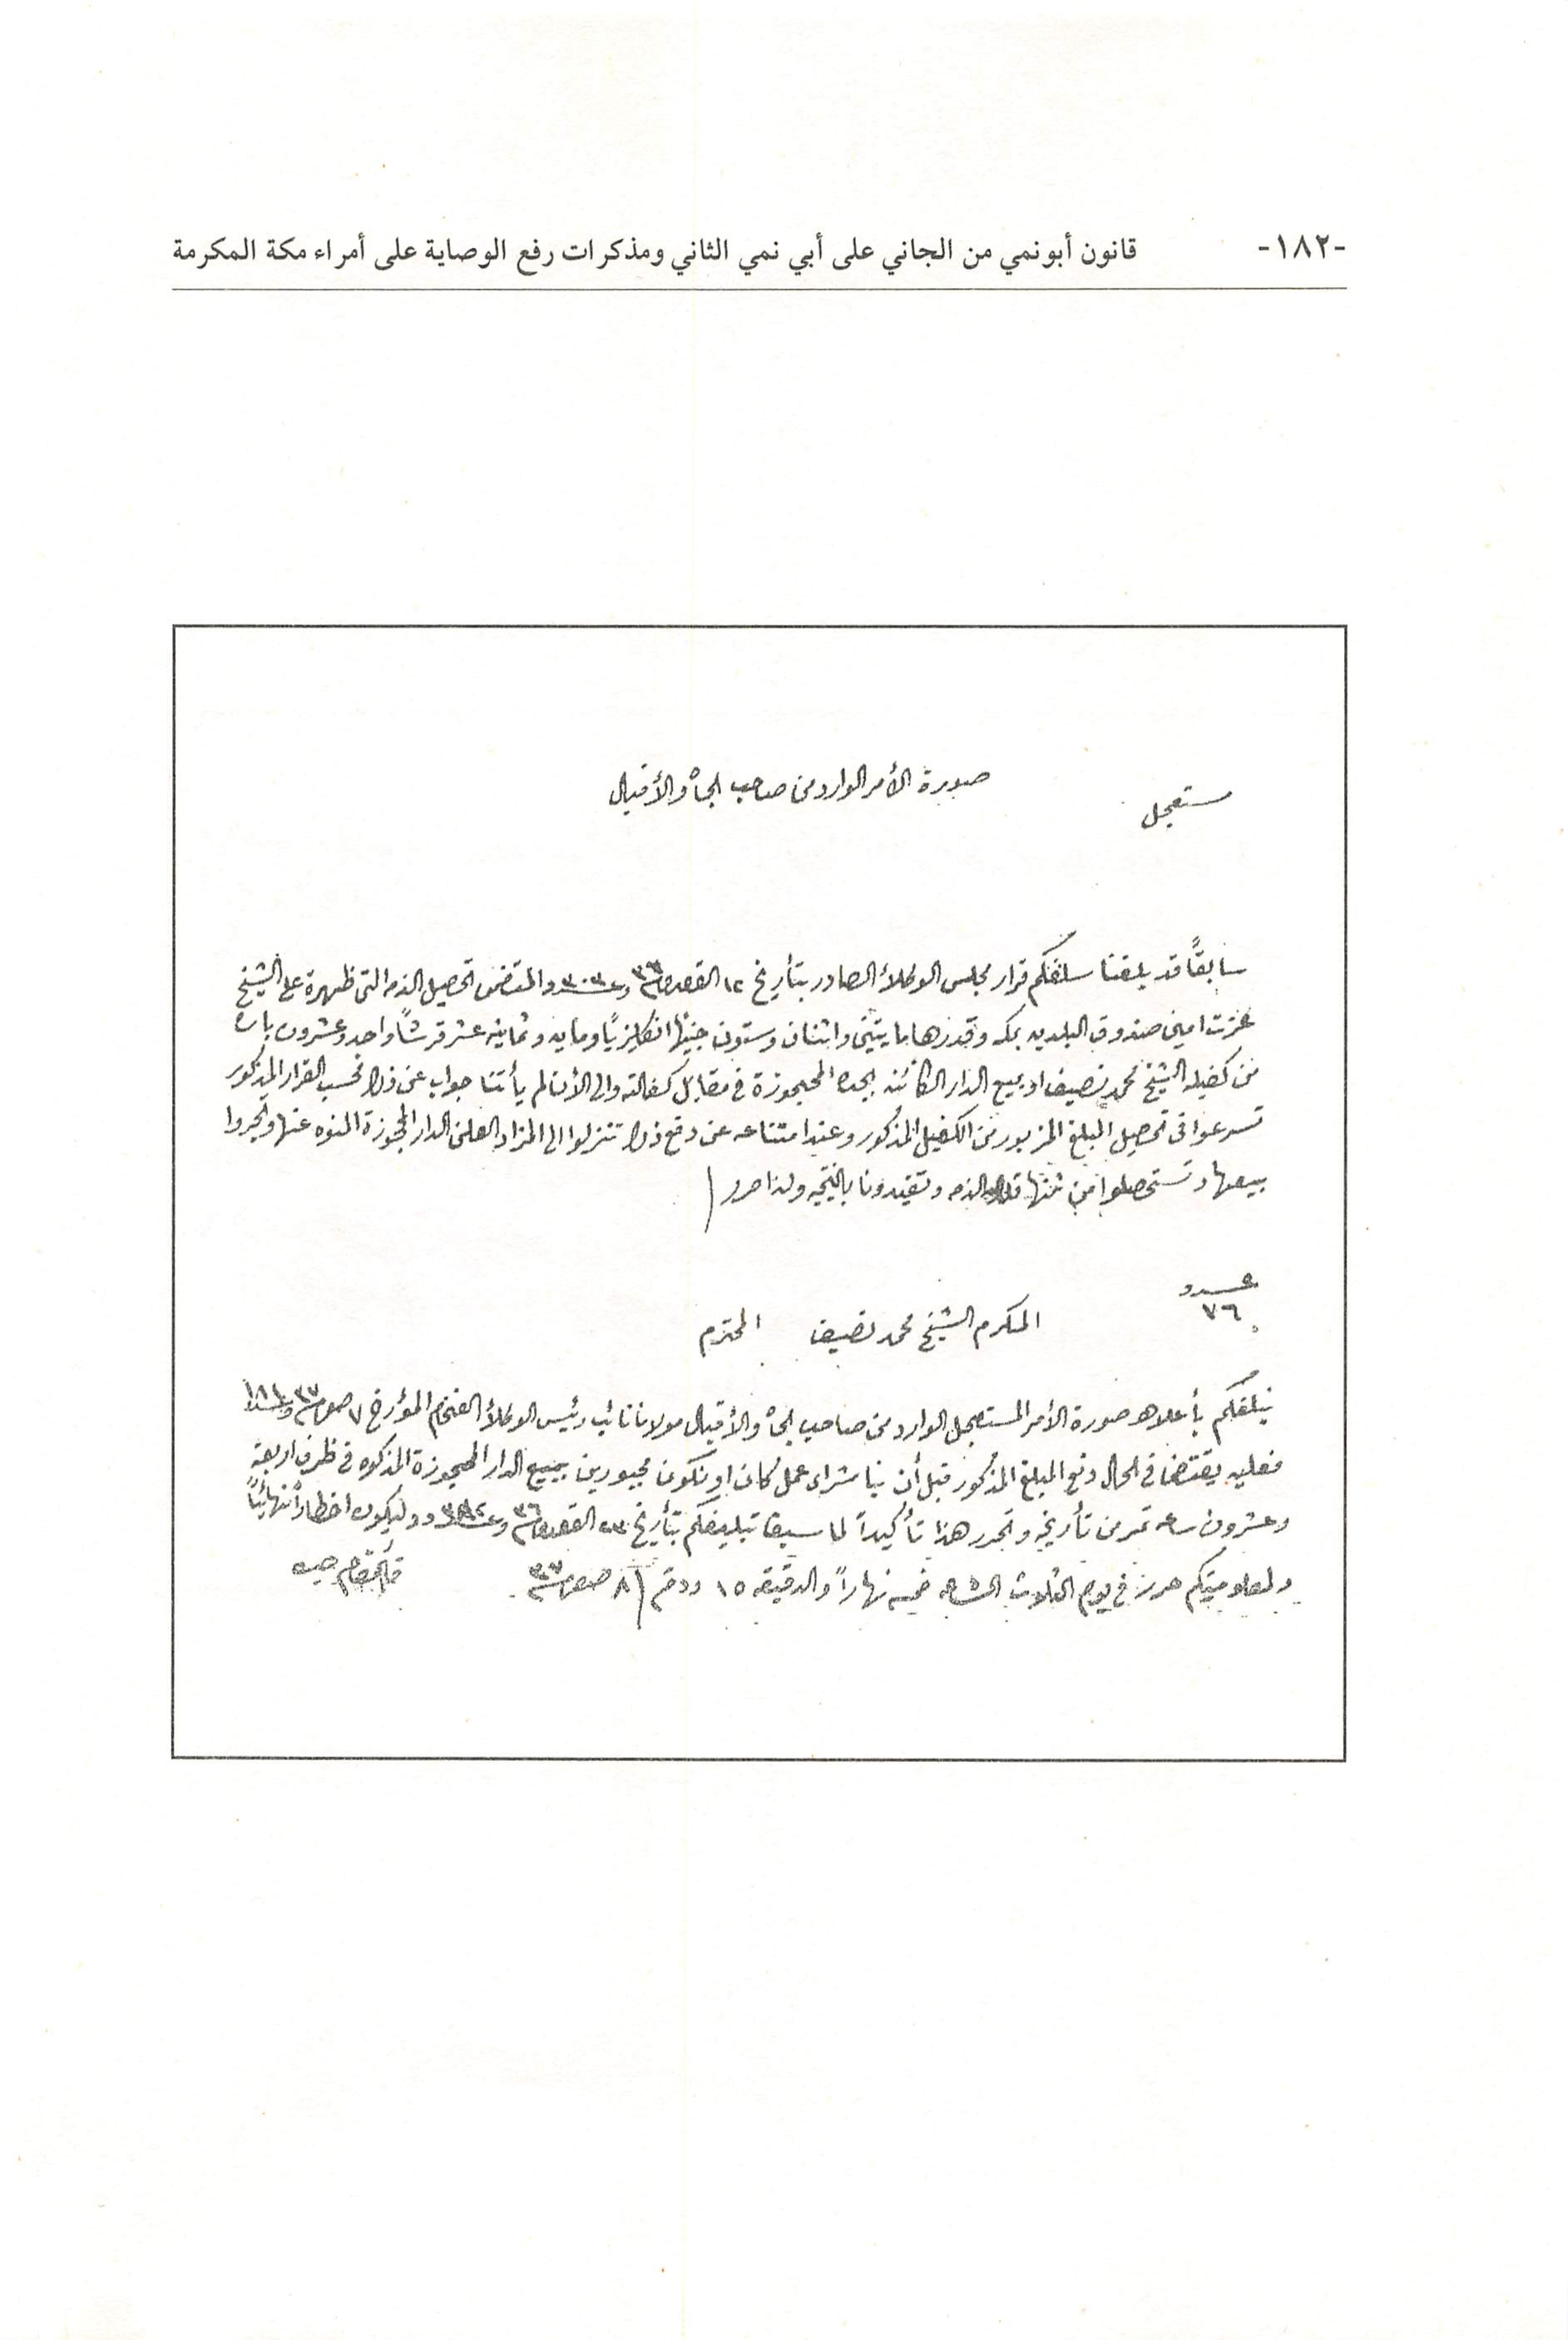 -١٨٢- قانون أبونمي من الجاني على أبي نمي الثاني ومذكرات رفع الوصاية على أمراء مكة المكرمة
مستعجل
صورة الأمر الوارد من صاحب الجاه والأقبال
سابقاً قد بلغنا سلفكم قرار مجلس الوكلاء الصادر بتأريخ ١٢ القعدة ٣٦ وعدد ٣٠٣ والمتضمن تحصيل الذمه التى ظهرة على الشيخ
عزت امين صندوق البلديه بمكه وقدرها مايتين واثنان وستون جنيهًا انكليزيًا ومايه وثمانيه عشر قرشًا واحد وعشرون باره
من كفيله الشيخ محمد نصيف او بيع الدار الكائنه بجده المحجوزة في مقابل كفالته والى الأن لم يأتنا جواب عن ذلك فحسب القرار المذكور
تسرعوا في تحصيل المبلغ المزبور من الكفيل المذكور وعند امتناعه عن دفع ذلك تنزلوا الى المزاد العلني الدار المحجوزة المنوه عنها وتجروا
بيعها وتستحصلوا من ثمنها تلك الذمه وتفيدونا بالنتيجه ولذا حرر
عدد
٧٦
المكرم الشيخ محمد نصيف المحترم
نبلغكم بأعلاه صورة الأمر المستعجل الوارد من صاحب الجاه والأقبال مولانا نائب رئيس الوكلاء الفخام المؤرخ ٧ صفر ٣٧ وعدد ١٨١
فعليه يقتضي في الحال دفع المبلغ المذكور قبل أن بنا شراى عمل كان او نكون مجبورين ببيع الدار المحجوزة المذكوره في ظرف اربعة
وعشرون ساعه تمر من تأريخه وتحرر هذا تأكيداً لما سبق تبليغكم بتأريخ ٢٣ القعدة ٣٦ وعدد وليكون اخطاراً نهائياً
ولمعلوميتكم حرر في يوم الثلاث الساعه خمسه نهاراً والدقيقه ١٥ ٨ صفر ٣٧
قائمقام جده